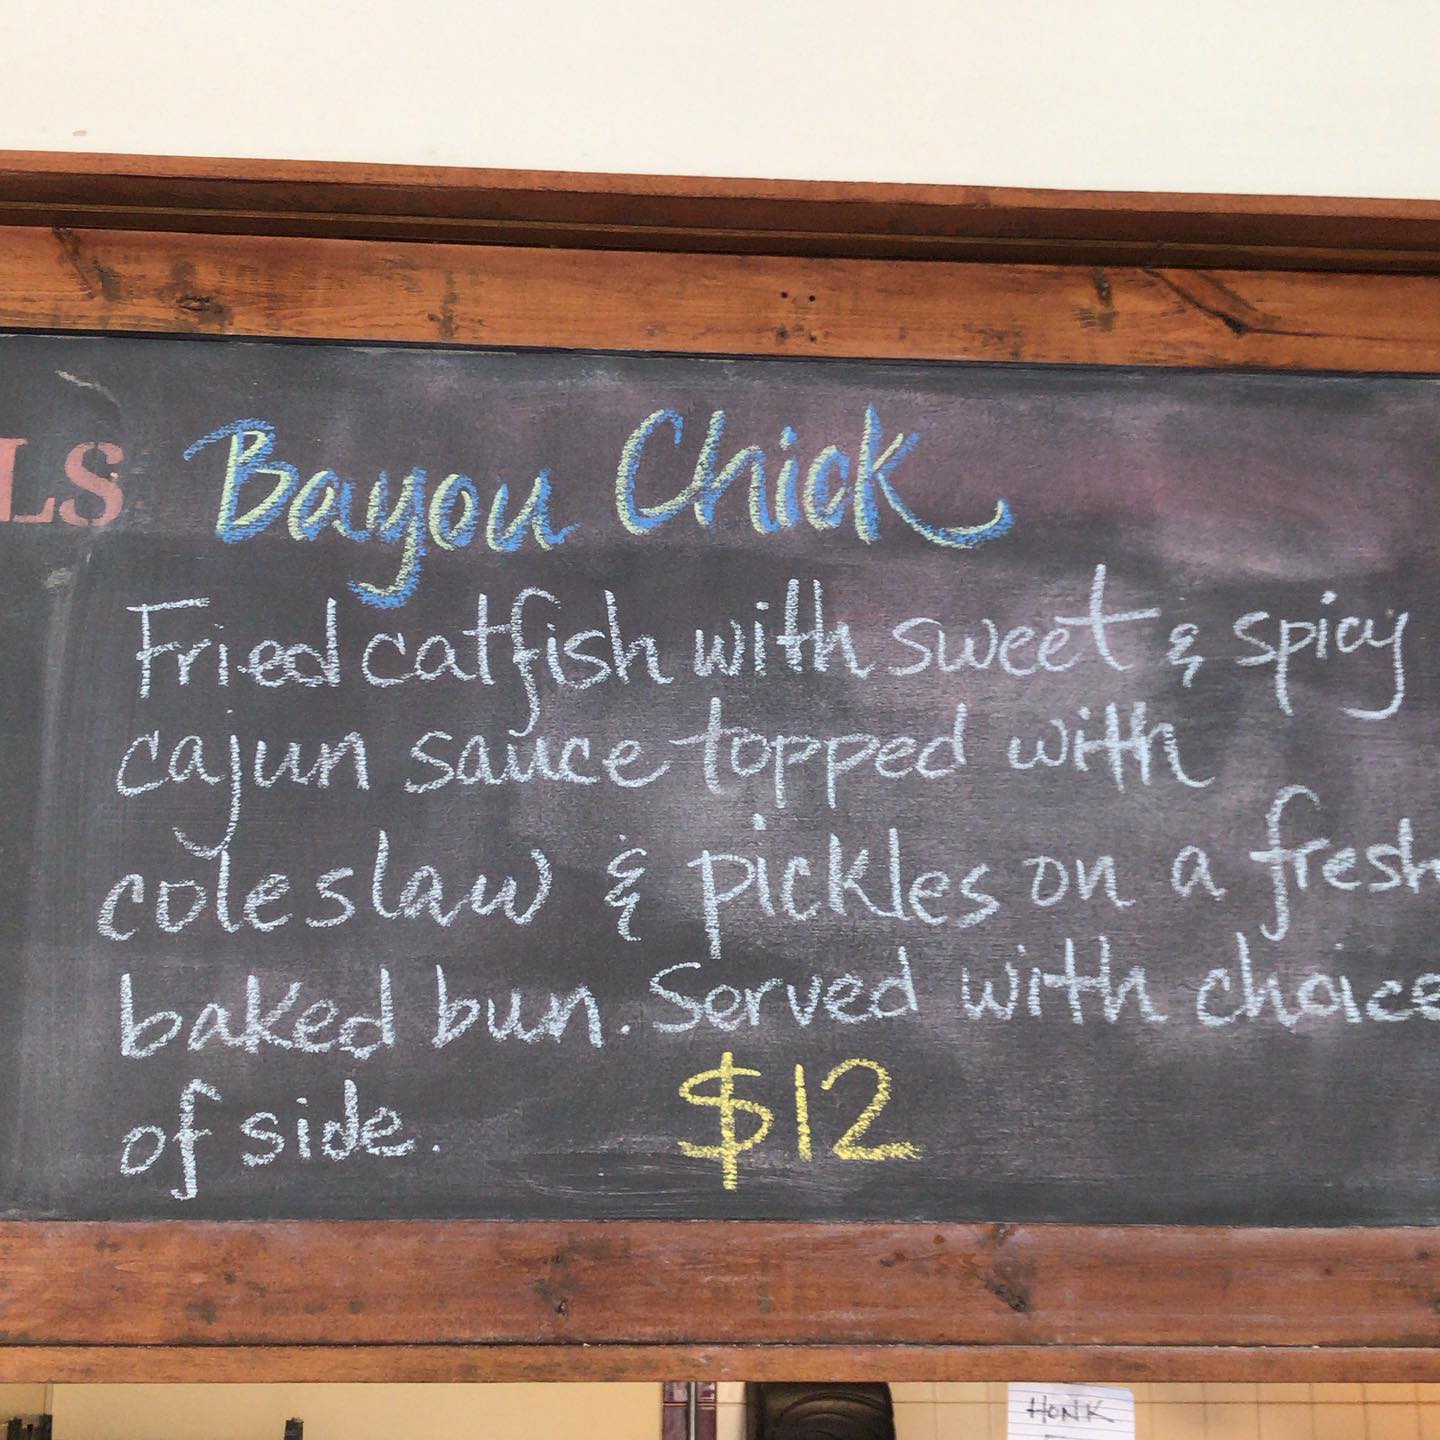 LS Bayou Chick
Fried catfish with sweet & spicy
cajun sauce topped with
coleslaw & pickles on a fresh
baked bun. Served with choice
of side. $12
HONK